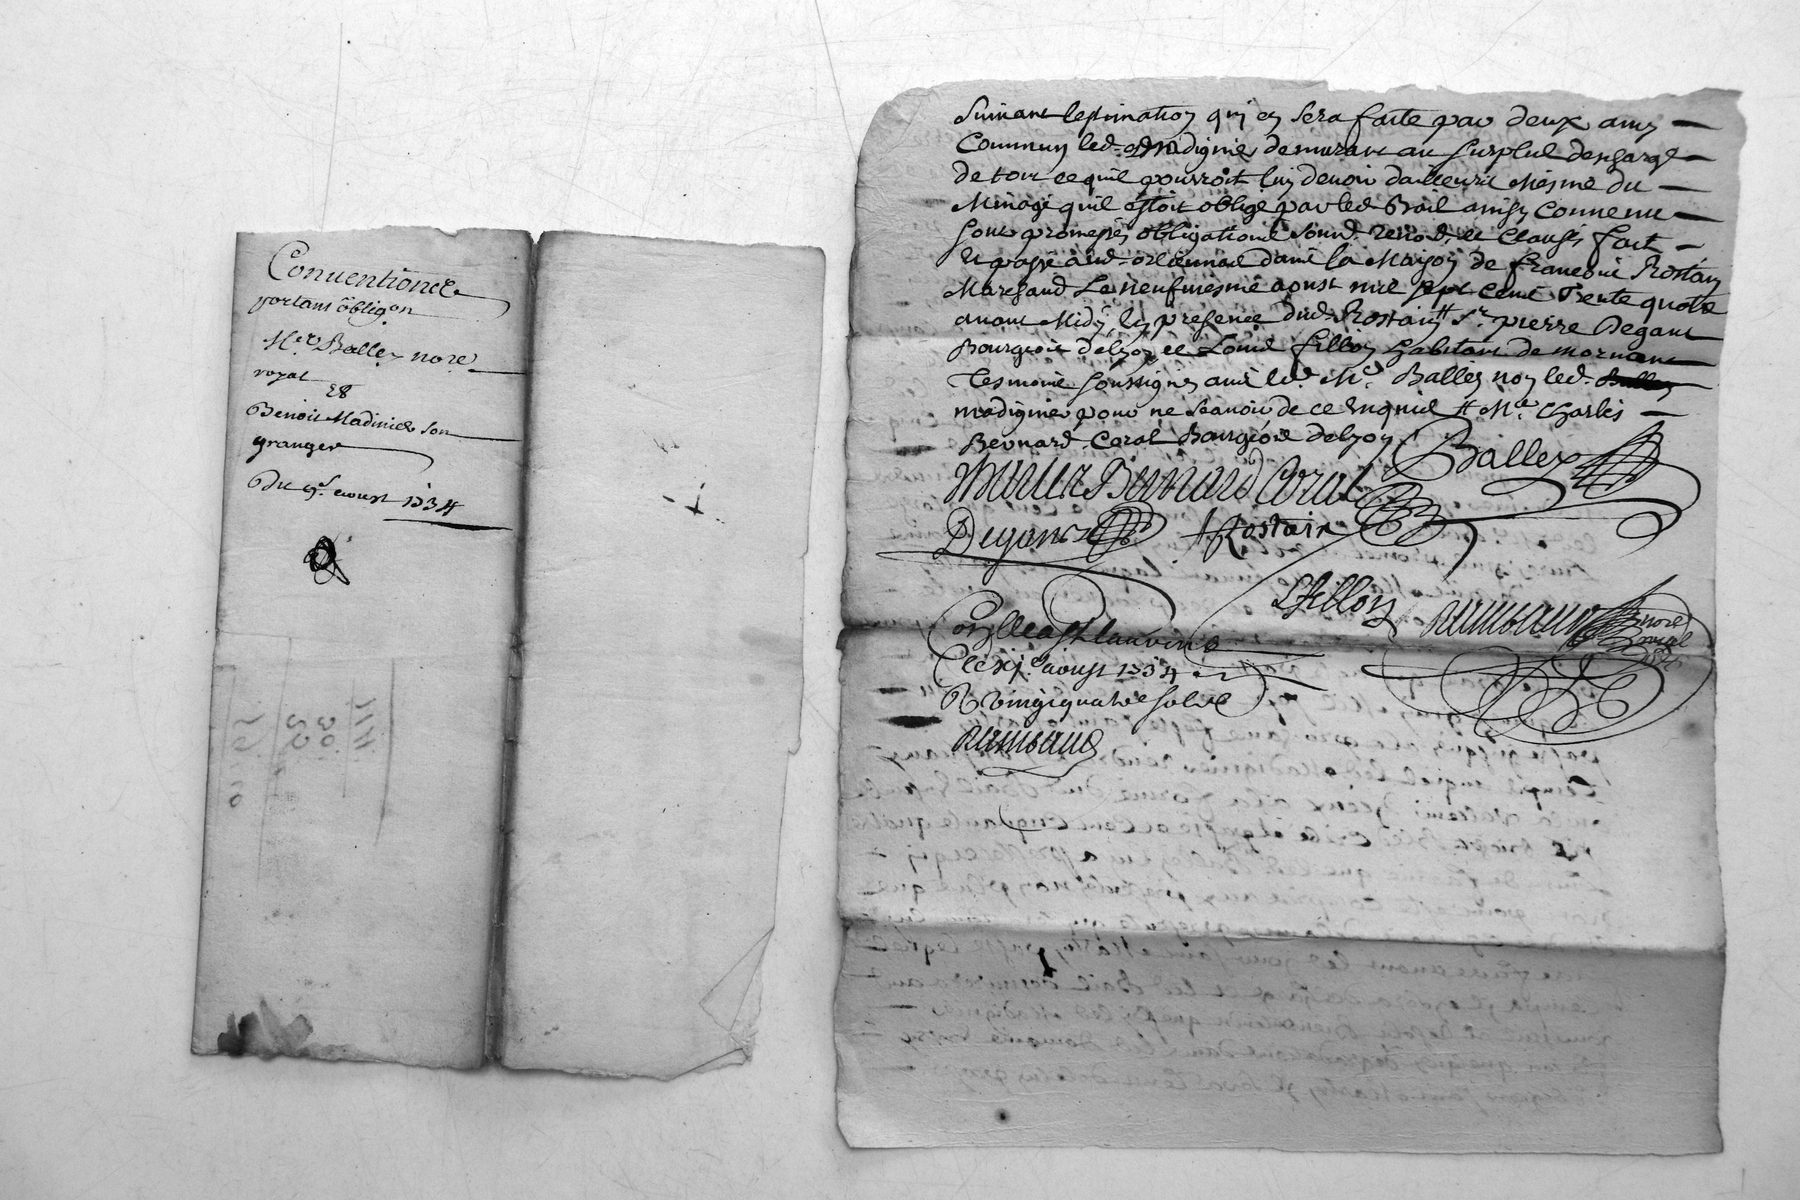 Conuentions
portans obligon
Mer Balley nore
royal
&
Benoit Madinier son
granger
Du 9e aoust 1734
Suiuant lestimation qui en sera faite par deux amis
Commun led. Madignier demurant au surplus descharge
de tout ce quil pourroit luy deuoir dailleurs mesme du
Minage quil estoit oblige par led. Bail ainsy Conuenu
sous promesses obligations soumd. renod. et Clauses fait
et passé aud. orliennas dans la Maison de francois Rostain
Marchand Le neufuiesme aoust mil sept cent Trente quatre
auant Midy En presence dud. Rostain # Sr pierre Degant
Bourgeois de lyon et Louis fillon habitant de mornant
Tesmoins soussignes auec led. Me Balley non led.
madignier pour ne scauoir de ce Enquis # Me Charles
Bernard Coral Bourgeois de lyon
Balley
Bernard Coral
Degant
Rostain
Lfillon
Rambaud nore royal
Conlle a St laurent
Le xje aoust 1734
R Vingtquatre sols
Rambaud